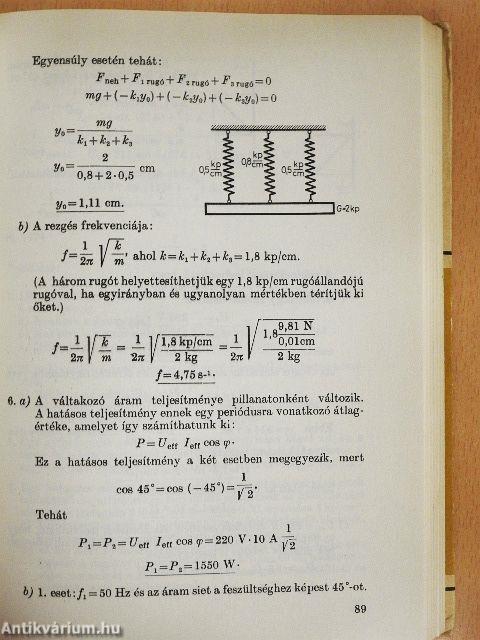 Egyensúly esetén tehát:
F neh + F 1 rugó + F 2 rugó + F 3 rugó = 0
mg + (−k₁y₀) + (−k₂y₀) + (−k₃y₀) = 0
y₀ = mg / (k₁ + k₂ + k₃)
y₀ = 2 / (0,8 + 2·0,5) cm
0,5 kp/cm 0,8 kp/cm 0,5 kp/cm
G=2kp
y₀ = 1,11 cm.
b) A rezgés frekvenciája:
f = 1/2π √(k/m), ahol k = k₁ + k₂ + k₃ = 1,8 kp/cm.
(A három rugót helyettesíthetjük egy 1,8 kp/cm rugóállandójú
rugóval, ha egyirányban és ugyanolyan mértékben térítjük ki
őket.)
f = 1/2π √(k/m) = 1/2π √(1,8 kp/cm / 2 kg) = 1/2π √(1,8 9,81 N/0,01cm / 2 kg)
f = 4,75 s⁻¹.
6. a) A váltakozó áram teljesítménye pillanatonként változik.
A hatásos teljesítmény ennek egy periódusra vonatkozó átlag-
értéke, amelyet így számíthatunk ki:
P = U eff I eff cos φ.
Ez a hatásos teljesítmény a két esetben megegyezik, mert
cos 45° = cos (−45°) = 1/√2.
Tehát
P₁ = P₂ = U eff I eff cos φ = 220 V·10 A 1/√2
P₁ = P₂ = 1550 W.
b) 1. eset: f₁ = 50 Hz és az áram siet a feszültséghez képest 45°-ot.
89
Antikvárium.hu